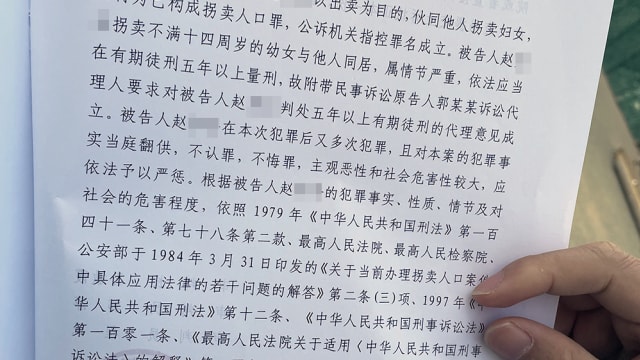 行为已构成拐卖人口罪，公诉机关指控罪名成立。被告人赵
以出卖为目的，伙同他人拐卖妇女，
拐卖不满十四周岁的幼女与他人同居，属情节严重，依法应当
在有期徒刑五年以上量刑，故附带民事诉讼原告人郭某某诉讼代
理人要求对被告人赵 判处五年以上有期徒刑的代理意见成
立。被告人赵 在本次犯罪后又多次犯罪，且对本案的犯罪事
实当庭翻供，不认罪，不悔罪，主观恶性和社会危害性较大，应
依法予以严惩。根据被告人赵 的犯罪事实、性质、情节及对
社会的危害程度，依照 1979 年《中华人民共和国刑法》第一百
四十一条、第七十八条第二款、最高人民法院、最高人民检察院、
公安部于 1984 年 3 月 31 日印发的《关于当前办理拐卖人口案
中具体应用法律的若干问题的解答》第二条(三)项、1997 年《
华人民共和国刑法》第十二条、《中华人民共和国刑事诉讼法》
第一百零一条、《最高人民法院关于适用〈中华人民共和国
诉讼法〉的解释》第